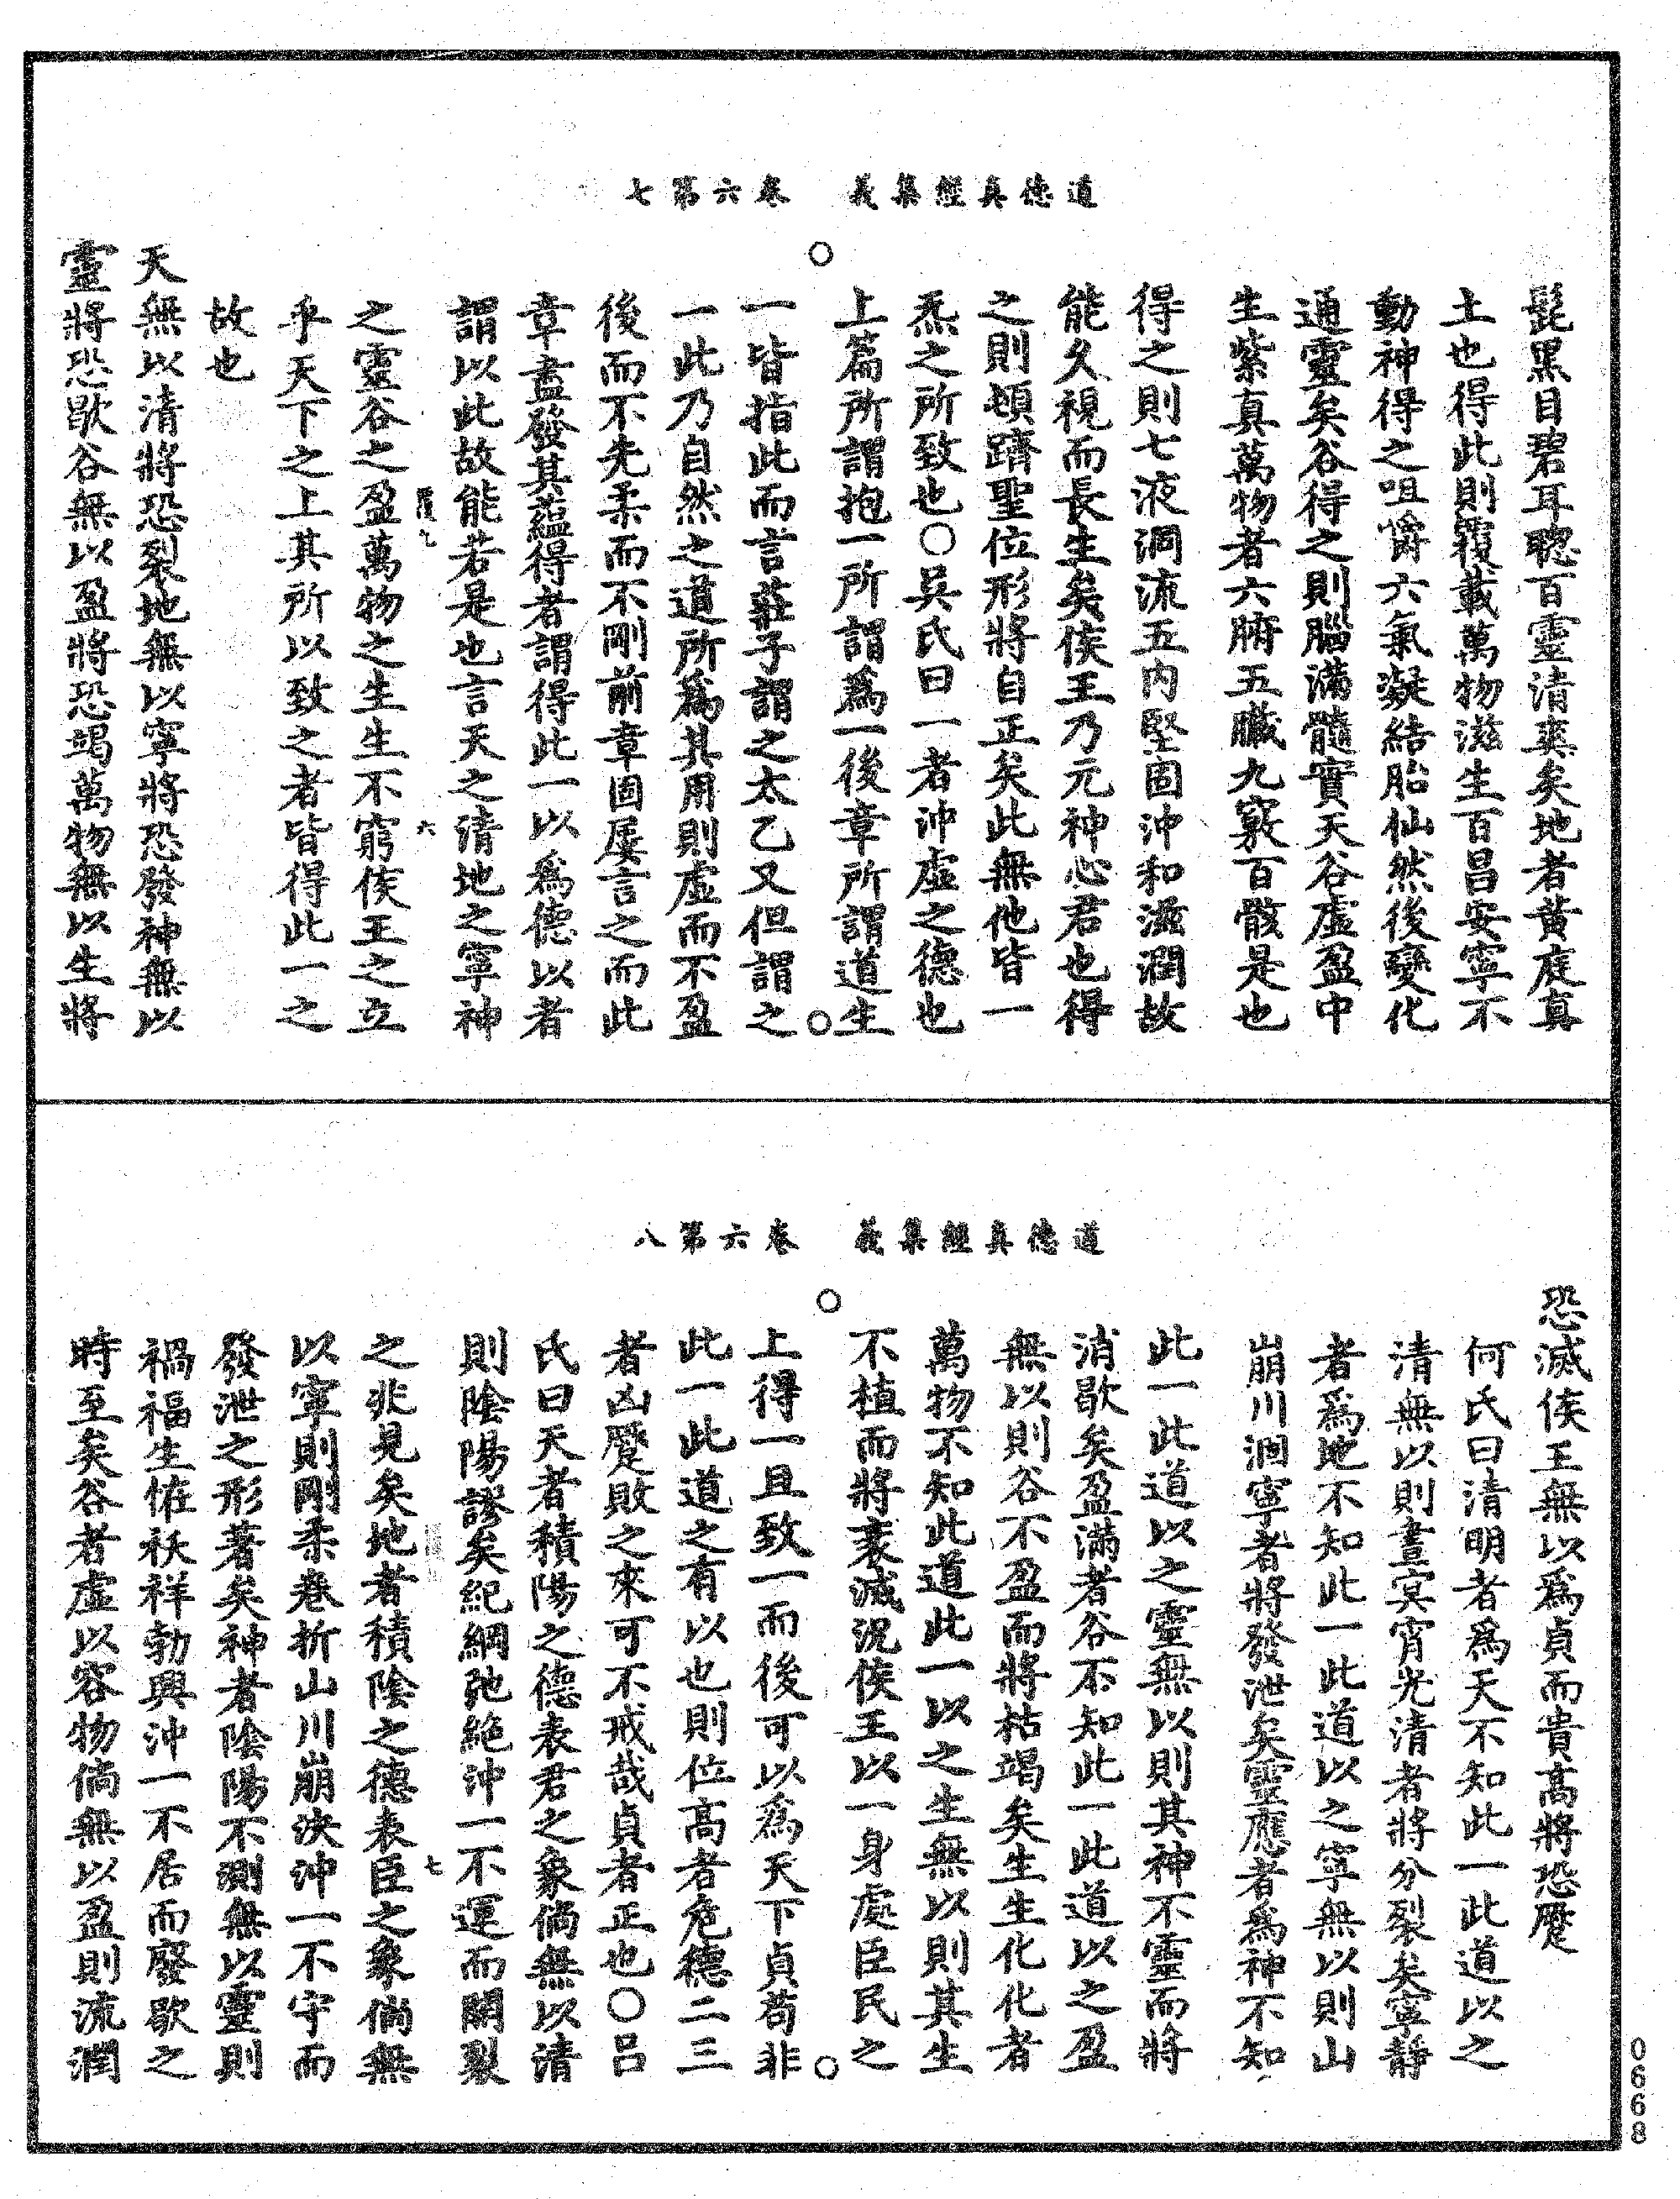 道德真經集義　卷六第七
髭黑目碧耳聰百靈清爽矣地者黃庭真
土也得此則覆載萬物滋生百昌安寧不
動神得之咀嚼六氣凝結胎仙然後變化
通靈矣谷得之則腦滿髓實天谷虛盈中
生紫真萬物者六腑五臟九竅百骸是也
得之則七液洞流五內堅固沖和滋潤故
能久視而長生矣侯王乃元神心君也得
之則頓躋聖位形將自正矣此無他皆一
炁之所致也○吳氏曰一者沖虛之德也
上篇所謂抱一所謂為一後章所謂道生
一皆指此而言莊子謂之太乙又但謂之
一此乃自然之道所為其用則虛而不盈
後而不先柔而不剛前章固屢言之而此
章盡發其蘊得者謂得此一以為德以者
謂以此故能若是也言天之清地之寧神
六
之靈谷之盈萬物之生生不窮侯王之立
乎天下之上其所以致之者皆得此一之
故也
天無以清將恐裂地無以寧將恐發神無以
靈將恐歇谷無以盈將恐竭萬物無以生將
道德真經集義　卷六第八
恐滅侯王無以為貞而貴高將恐蹷
何氏曰清明者為天不知此一此道以之
清無以則晝冥宵光清者將分裂矣寧靜
者為地不知此一此道以之寧無以則山
崩川涸寧者將發泄矣靈應者為神不知
此一此道以之靈無以則其神不靈而將
消歇矣盈滿者谷不知此一此道以之盈
無以則谷不盈而將枯竭矣生生化化者
萬物不知此道此一以之生無以則其生
不植而將衰滅況侯王以一身處臣民之
上得一且致一而後可以為天下貞苟非
此一此道之有以也則位高者危德二三
者凶蹷敗之來可不戒哉貞者正也○呂
氏曰天者積陽之德表君之象倘無以清
則陰陽謬矣紀綱弛絕沖一不運而開裂
七
之兆見矣地者積陰之德表臣之象倘無
以寧則剛柔卷折山川崩決沖一不守而
發泄之形著矣神者陰陽不測無以靈則
禍福生怪袄祥勃興沖一不居而廢歇之
時至矣谷者虛以容物倘無以盈則流潤
0668